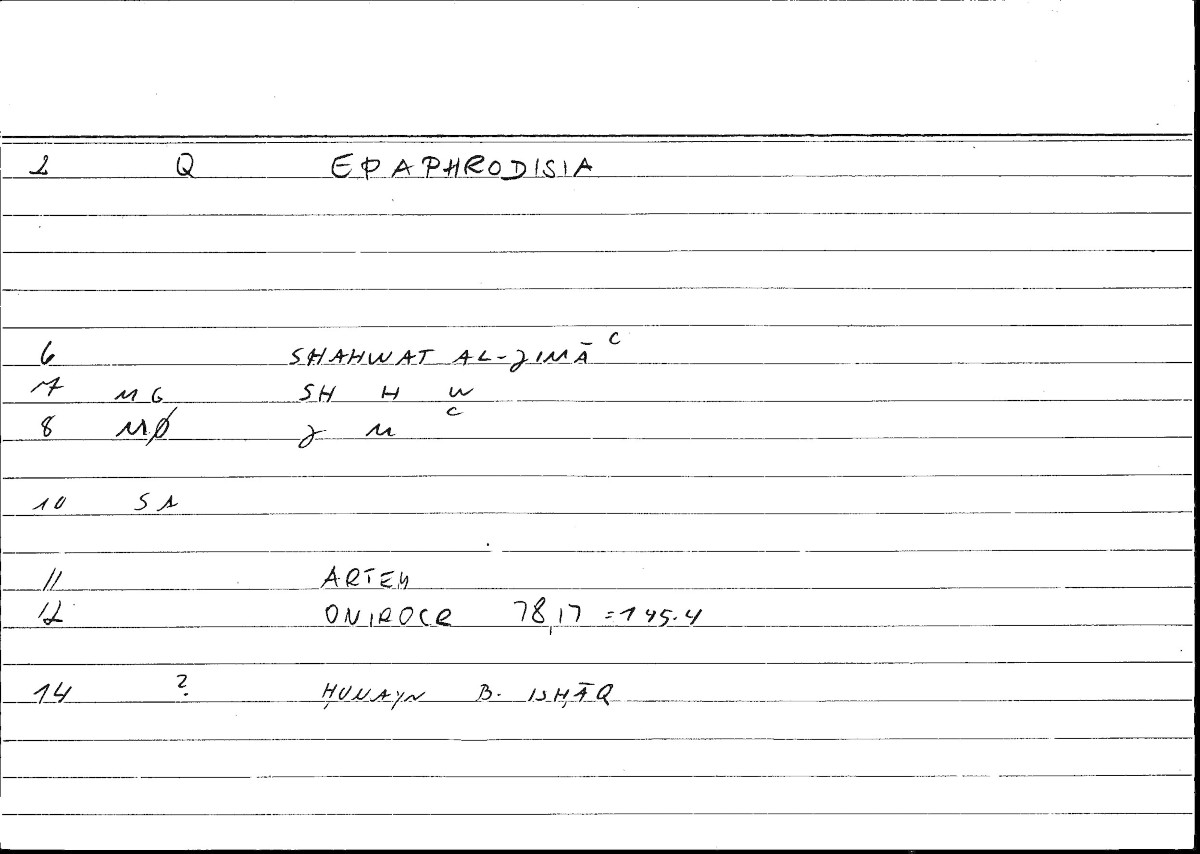 2 Q EPAPHRODISIA
6 SHAHWAT AL-JIMĀ ͨ
7 MG SH H W
8 MØ J M ͨ
10 SA
11 ARTEM
12 ONIROCR 78,17 = 145.4
14 ? ḤUNAYN B. ISḤĀQ